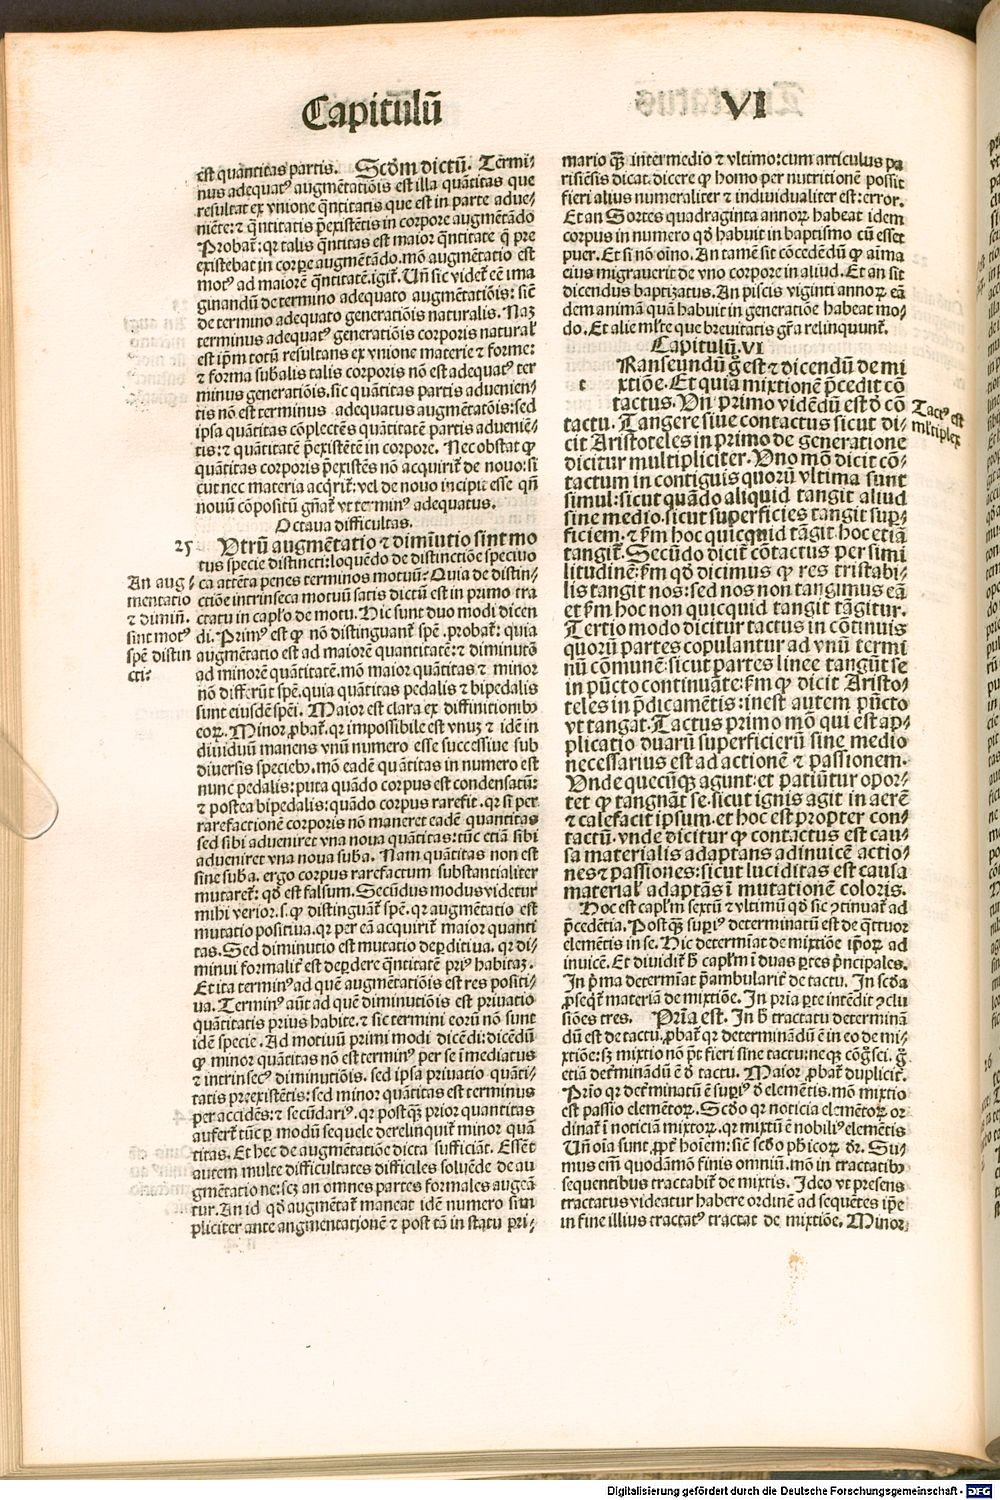 Capitulū
VI
est quantitas partis. Scd̄m dictū. Termi⸗
nus adequatꝰ augmētatiōis est illa quātitas que
resultat ex vnione q̄ntitatis que est in parte adue⸗
niēte: ⁊ q̄ntitatis p̄existētis in corpore augmētādo
Probat᷑: qꝛ talis q̄ntitas est maior q̄ntitate q̄ pre
existebat in corpore augmētādo. mō augmētatio est
motꝰ ad maiorē q̄ntitatē. igit᷑. Un̄ sic videt᷑ eē ima
ginandū de termino adequato augmētatiōis: siē
de termino adequato generatiōis naturalis. Naꝫ
terminus adequatꝰ generatiōis corporis natural᷑
est ip̄m totū resultans ex vnione materie ⁊ forme:
⁊ forma subalis talis corporis nō est adequatꝰ ter
minus generatiōis. sic quātitas partis aduenien⸗
tis nō est terminus adequatus augmētatōis: sed
ipsa quātitas cōplectēs quātitatē partis adueniē⸗
tis: ⁊ quātitatē p̄existētē in corpore. Nec obstat ꝙ
quātitas corporis p̄existēs nō acquirit᷑ de nouo: si
cut nec materia acq̄rit᷑: vel de nouo incipit esse qn̄
nouū cōpositū gn̄at᷑ vt terminꝰ adequatus.
Octaua difficultas.
25 Utrū augmētatio ⁊ dimīutio sint mo
tus specie distincti: loquēdo de distinctiōe speciuo
ca attēta penes terminos motuū? Quia de distin⸗
ctiōe intrinseca motuū satis dictū est in primo tra
ctatu in capl̄o de motu. Hic sunt duo modi dicen
di. Primꝰ est ꝙ nō distinguant᷑ spē. probat᷑: quia
augmētatio est ad maiorē quantitatē: ⁊ diminutō
ad minorē quātitatē. mō maior quātitas ⁊ minor
nō differūt spē. quia quātitas pedalis ⁊ bipedalis
sunt eiusdē spēi. Maior est clara ex diffinitionibꝰ
eoꝝ. Minor ꝓbat᷑. qꝛ impossibile est vnuꝫ ⁊ idē in
diuiduū manens vnū numero esse successiue sub
diuersis speciebꝰ. mō eadē quātitas in numero est
nunc pedalis: puta quādo corpus est condensatū:
⁊ postea bipedalis: quādo corpus rarefit. qꝛ si per
rarefactionē corporis nō maneret eadē quantitas
sed sibi adueniret vna noua quātitas: tūc etiā sibi
adueniret vna noua suba. Nam quātitas non est
sine suba. ergo corpus rarefactum substantialiter
mutaret᷑: qd̄ est falsum. Secūdus modus videtur
mihi verior. s. ꝙ distinguāt᷑ spē. qꝛ augmētatio est
mutatio positiua. qꝛ per eā acquirit᷑ maior quanti
tas. Sed diminutio est mutatio deꝑditiua. qꝛ di⸗
minui formalit᷑ est deꝑdere q̄ntitatē priꝰ habitaꝫ.
Et ita terminꝰ ad quē augmētatiōis est res positi⸗
ua. Terminꝰ aūt ad quē diminutiōis est priuatio
quātitatis prius habite. ⁊ sic termini eorū nō sunt
idē specie. Ad motiuū primi modi dicēdi: dicēdū
ꝙ minor quātitas nō est terminꝰ per se īmediatus
⁊ intrinsecꝰ diminutiōis. sed ipsa priuatio quāti⸗
tatis preexistētis: sed minor quātitas est terminus
per accidēs: ⁊ secūdariꝰ. qꝛ postq̄ꝫ prior quantitas
aufert᷑ tūc ꝑ modū sequele derelinquit᷑ minor quā
titas. Et hec de augmētatiōe dicta sufficiāt. Essēt
autem multe difficultates difficiles soluēde de au
gmētatione: scꝫ an omnes partes formales augeā
tur. An id qd̄ augmētat᷑ maneat idē numero sim
pliciter ante augmentationē ⁊ post tā in statu pri⸗
An aug⸗
mentatio
⁊ diminū.
sint motꝰ
spē distin
cti?
mario q̄ꝫ intermedio ⁊ vltimo: cum articulus pa
risiēsis dicat. dicere ꝙ homo per nutritionē possit
fieri alius numeraliter ⁊ indiuidualiter est: error.
Et an Sortes quadraginta annoꝝ habeat idem
corpus in numero qd̄ habuit in baptismo cū esset
puer. Et si nō oīno. An tamē sit cōcedēdū ꝙ aīma
eius migrauerit de vno corpore in aliud. Et an sit
dicendus baptizatus. An piscis viginti annoꝝ eā
dem animā quā habuit in generatiōe habeat mo⸗
do. Et alie ml̄te que breuitatis gr̄a relinquunt᷑.
Capitulū. VI
t Ranseundū g̊ est ⁊ dicendū de mi
xtiōe. Et quia mixtionē p̄cedit cō
tactus. Un̄ primo vidēdū est d̄ cō
tactu. Tangere siue contactus sicut di⸗
cit Aristoteles in primo de generatione
dicitur multipliciter. Uno mō dicit cō⸗
tactum in contiguis quorū vltima sunt
simul: sicut quādo aliquid tangit aliud
sine medio. sicut superficies tangit suꝑ⸗
ficiem. ⁊ ẜm hoc quicquid tāgit hoc etiā
tangit᷑. Secūdo dicit᷑ cōtactus per simi
litudinē: ẜm qd̄ dicimus ꝙ res tristabi⸗
lis tangit nos: sed nos non tangimus eā
et ẜm hoc non quicquid tangit tāgitur.
Tertio modo dicitur tactus in cōtinuis
quorū partes copulantur ad vnū termi
nū cōmunē: sicut partes linee tangūt se
in pūcto continuāte: ẜm ꝙ dicit Aristo⸗
teles in p̄dicamētis: inest autem pūcto
vt tangat. Tactus primo mō qui est ap⸗
plicatio duarū superficierū sine medio
necessarius est ad actionē ⁊ passionem.
Unde quecūqꝫ agunt: et patiūtur opor⸗
tet ꝙ tangnāt se. sicut ignis agit in aerē
⁊ calefacit ipsum. et hoc est propter con⸗
tactū. vnde dicitur ꝙ contactus est cau⸗
sa materialis adaptans adinuicē actio⸗
nes ⁊ passiones: sicut luciditas est causa
material᷑ adaptās ī mutationē coloris.
Hoc est capl̄m sextū ⁊ vltimū qd̄ sic ꝯtinuat᷑ ad
p̄cedētia. Postq̄ꝫ supiꝰ determinatū est de q̄ttuor
elemētis in se. Hic determīat de mixtiōe ip̄oꝝ ad
inuicē. Et diuidit᷑ h̄ capl̄m ī duas ꝑtes p̄ncipales.
In p̄ma determīat p̄ambularit᷑ de tactu. In scd̄a
ꝓseqt᷑ materiā de mixtiōe. In pria ꝑte intēdit ꝯclu
siōes tres. Pria est. In h̄ tractatu determinā
dū est de tactu. ꝓbat᷑ qꝛ determinādū ē in eo de mi⸗
xtiōe: sꝫ mixtio nō p̄t fieri sine tactu: neqꝫ cōg̊sci. g̊
etiā det᷑minādū ē d̄ tactu. Maior ꝓbat᷑ duplicit᷑.
Prio qꝛ det᷑minatū ē supiꝰ d̄ elemētis. mō mixtio
est passio elemētoꝝ. Scd̄o qꝛ noticia elemētoꝝ or
dinat᷑ ī noticiā mixtoꝝ. qꝛ mixtū ē nobiliꝰ elemētis
Un̄ oīa sunt ꝓpt᷑ hoīem: siē scd̄o ph̄icoꝝ dr̄. Su⸗
mus em̄ quodāmō finis omniū. mō in tractatibꝰ
sequentibus tractabit᷑ de mixtis. Ideo vt presens
tractatus videatur habere ordinē ad sequētes ip̄e
in fine illius tractatꝰ tractat de mixtiōe. Minor
Tactꝰ est
ml̄tiplex
Digitalisierung gefördert durch die Deutsche Forschungsgemeinschaft - DFG